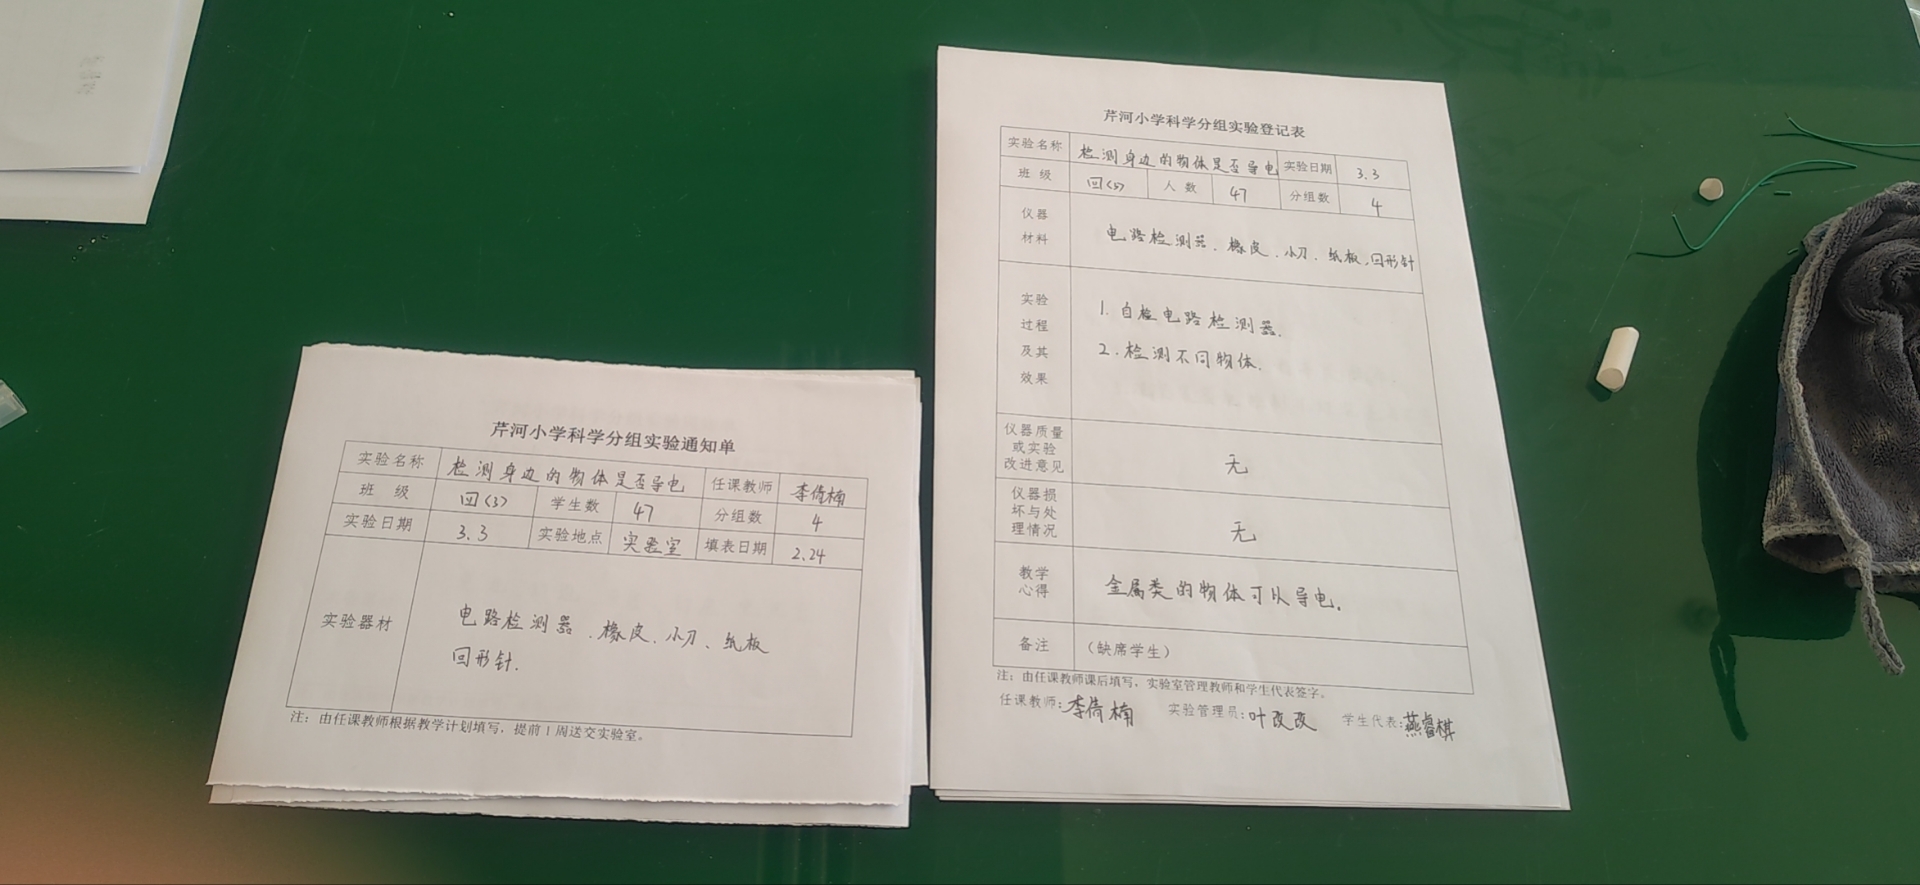 芹河小学科学分组实验通知单
实验名称 检测身边的物体是否导电 任课教师 李倩楠
班 级 四(3) 学生数 47 分组数 4
实验日期 3.3 实验地点 实验室 填表日期 2.24
实验器材 电路检测器、橡皮、小刀、纸板
回形针.
注: 由任课教师根据教学计划填写, 提前1周送交实验室。
芹河小学科学分组实验登记表
实验名称 检测身边的物体是否导电 实验日期 3.3
班 级 人 数 47 分组数 4
仪器
材料
电路检测器、橡皮、小刀、纸板、回形针
实验
过程
及其
效果
1. 自检电路检测器.
2. 检测不同物体.
仪器质量
或实验
改进意见
无
仪器损
坏与处
理情况
无
教学
心得
金属类的物体可以导电.
备注 (缺席学生)
注: 由任课教师课后填写, 实验室管理教师和学生代表签字。
任课教师: 李倩楠 实验管理员: 叶改改 学生代表: 燕睿棋